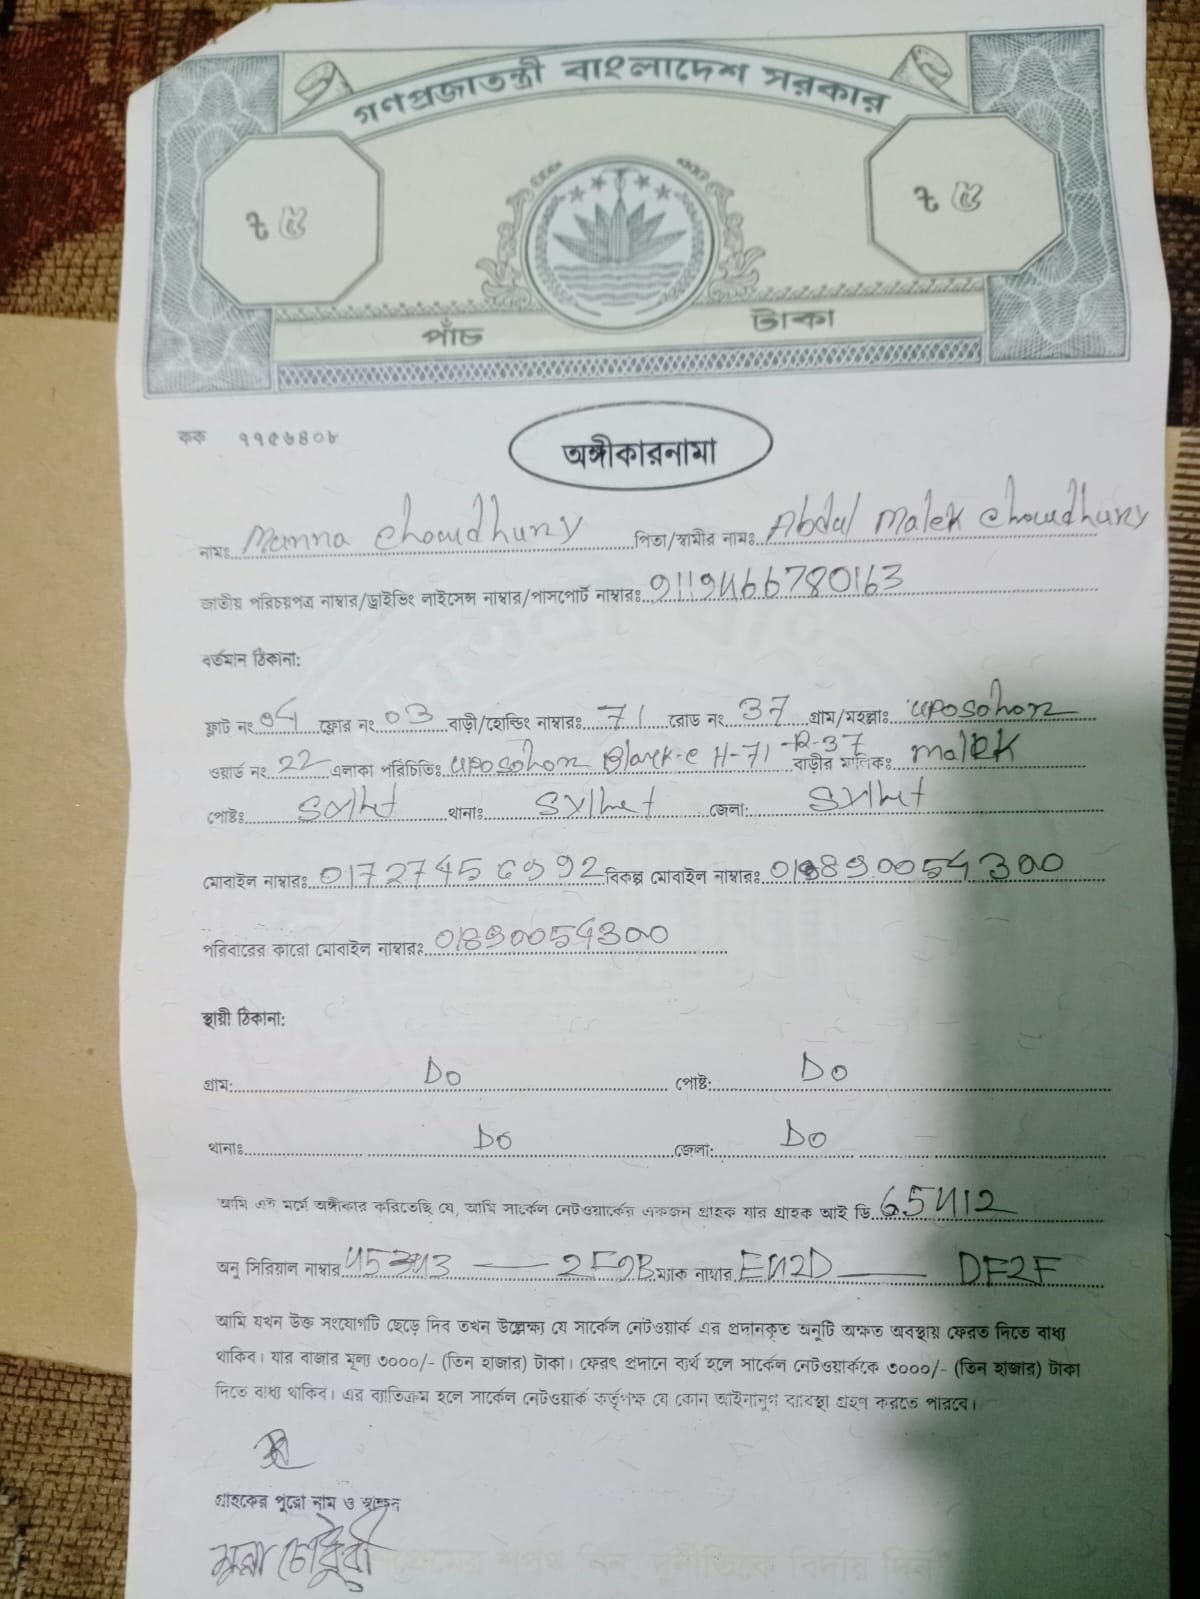 গণপ্রজাতন্ত্রী বাংলাদেশ সরকার
৳ ৫ ৳ ৫
পাঁচ টাকা
কক ৭৭৫৬৪০৮
অঙ্গীকারনামা
নামঃ Munna Chowdhury পিতা/স্বামীর নামঃ Abdul Malek Chowdhury
জাতীয় পরিচয়পত্র নাম্বার/ড্রাইভিং লাইসেন্স নাম্বার/পাসপোর্ট নাম্বারঃ 9119466780163
বর্তমান ঠিকানা:
ফ্লাট নং 04 ফ্লোর নং 03 বাড়ী/হোল্ডিং নাম্বারঃ 71 রোড নং 37 গ্রাম/মহল্লাঃ uposohor
ওয়ার্ড নং 22 এলাকা পরিচিতিঃ uposohor Block-e H-71 -R-37 বাড়ীর মালিকঃ malek
পোষ্টঃ Sylhet থানাঃ Sylhet জেলা: Sylhet
মোবাইল নাম্বারঃ 01727456992 বিকল্প মোবাইল নাম্বারঃ
পরিবারের কারো মোবাইল নাম্বারঃ 01890054300
স্থায়ী ঠিকানা:
গ্রাম: Do পোষ্ট: Do
থানাঃ Do জেলা: Do
আমি এই মর্মে অঙ্গীকার করিতেছি যে, আমি সার্কেল নেটওয়ার্কের একজন গ্রাহক যার গ্রাহক আই ডি 65412
অনু সিরিয়াল নাম্বার — 2F2B ম্যাক নাম্বার E42D — DF2F
আমি যখন উক্ত সংযোগটি ছেড়ে দিব তখন উল্লেক্ষ্য যে সার্কেল নেটওয়ার্ক এর প্রদানকৃত অনুটি অক্ষত অবস্থায় ফেরত দিতে বাধ্য
থাকিব। যার বাজার মূল্য ৩০০০/- (তিন হাজার) টাকা। ফেরৎ প্রদানে ব্যর্থ হলে সার্কেল নেটওয়ার্ককে ৩০০০/- (তিন হাজার) টাকা
দিতে বাধ্য থাকিব। এর ব্যাতিক্রম হলে সার্কেল নেটওয়ার্ক কর্তৃপক্ষ যে কোন আইনানুগ ব্যবস্থা গ্রহণ করতে পারবে।
গ্রাহকের পুরো নাম ও স্বাক্ষর
মুন্না চৌধুরী